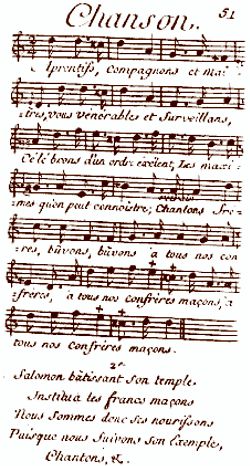 Chanson. 51
Aprentifs, Compagnons et maî-
tres, vous vénérables et Surveillans,
Célébrons d'un ordre éxèlent, Les maxi-
mes qu'on peut connoistre; Chantons frè-
res, bûvons, bûvons à tous nos con
frères, à tous nos Confrères maçons, à
tous nos Confrères maçons.
2e
Salomon bâtissant son temple.
Institüa les francs maçons
Nous Sommes donc ses nourissons
Puisque nous Suivons Son Exemple,
Chantons, &.